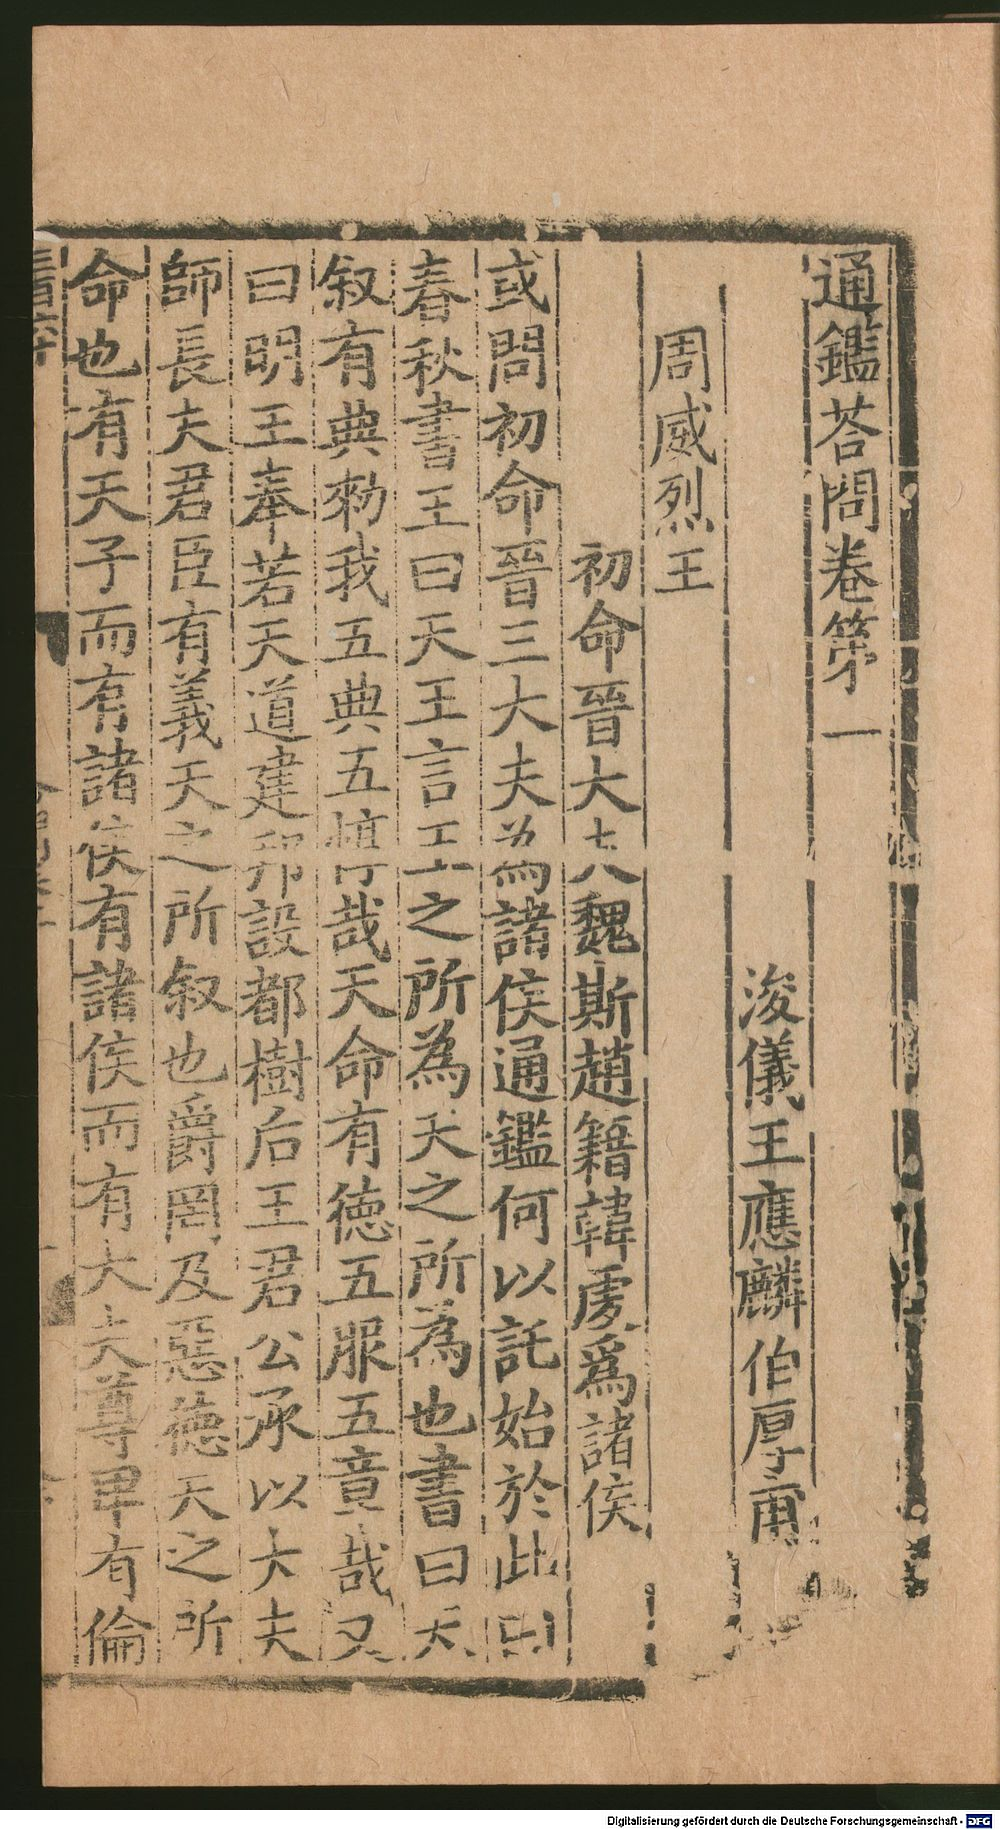 通鑑荅問卷第一
浚儀王應麟伯厚甫
周威烈王
初命晉大夫魏斯趙籍韓虔爲諸侯
或問初命晉三大夫為諸侯通鑑何以託始於此曰
春秋書王曰天王言王之所為天之所為也書曰天
叙有典勑我五典五惇哉天命有德五服五章哉又
曰明王奉若天道建邦設都樹后王君公承以大夫
師長夫君臣有義天之所叙也爵罔及惡德天之所
命也有天子而有諸侯有諸侯而有大夫尊卑有倫
Digitalisierung gefördert durch die Deutsche Forschungsgemeinschaft - DFG